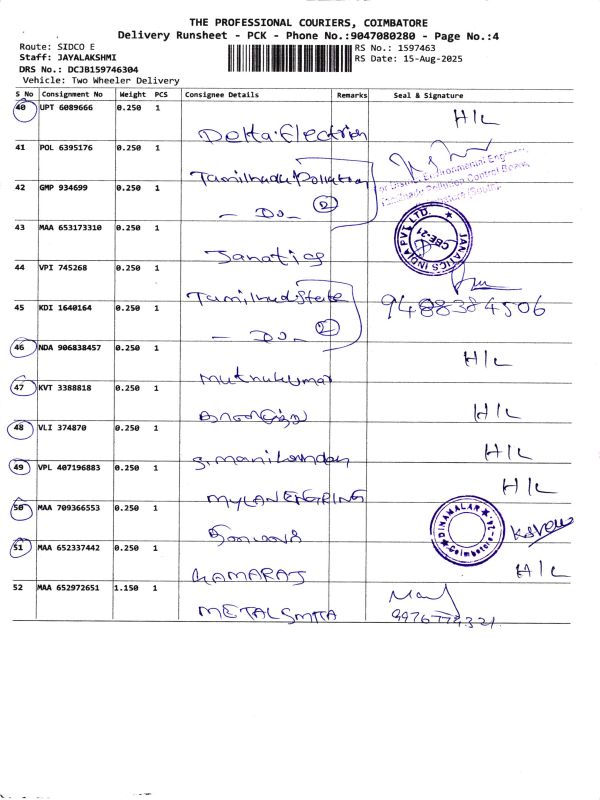 THE PROFESSIONAL COURIERS, COIMBATORE
Delivery Runsheet - PCK - Phone No.:9047080280 - Page No.:4
Route: SIDCO E
RS No.: 1597463
Staff: JAYALAKSHMI
RS Date: 15-Aug-2025
DRS No.: DCJB159746304
Vehicle: Two Wheeler Delivery
S No Consignment No Weight PCS Consignee Details Remarks Seal & Signature
40 UPT 6089666 0.250 1 H/L
Delta Electrics
41 POL 6395176 0.250 1
Tamilnadu Pollution
District Environmental Engineer
Tamilnadu Pollution Control Board,
42 GMP 934699 0.250 1
- Do - 2
43 MAA 653173310 0.250 1
Janatics
JANATICS INDIA PVT LTD.
CBE-21
44 VPI 745268 0.250 1
Tamilnad State
45 KDI 1640164 0.250 1 9488384506
- Do - 2
46 NDA 906838457 0.250 1 H/L
Muthukumar
47 KVT 3388818 0.250 1 H/L
48 VLI 374870 0.250 1 H/L
S. Manikandan
49 VPL 407196883 0.250 1 H/L
MYLAN ENGRING
50 MAA 709366553 0.250 1
தினமலர்
DINAMALAR
Coimbatore-24.
51 MAA 652337442 0.250 1 H/L
KAMARAJ
52 MAA 652972651 1.150 1
METALSMITA